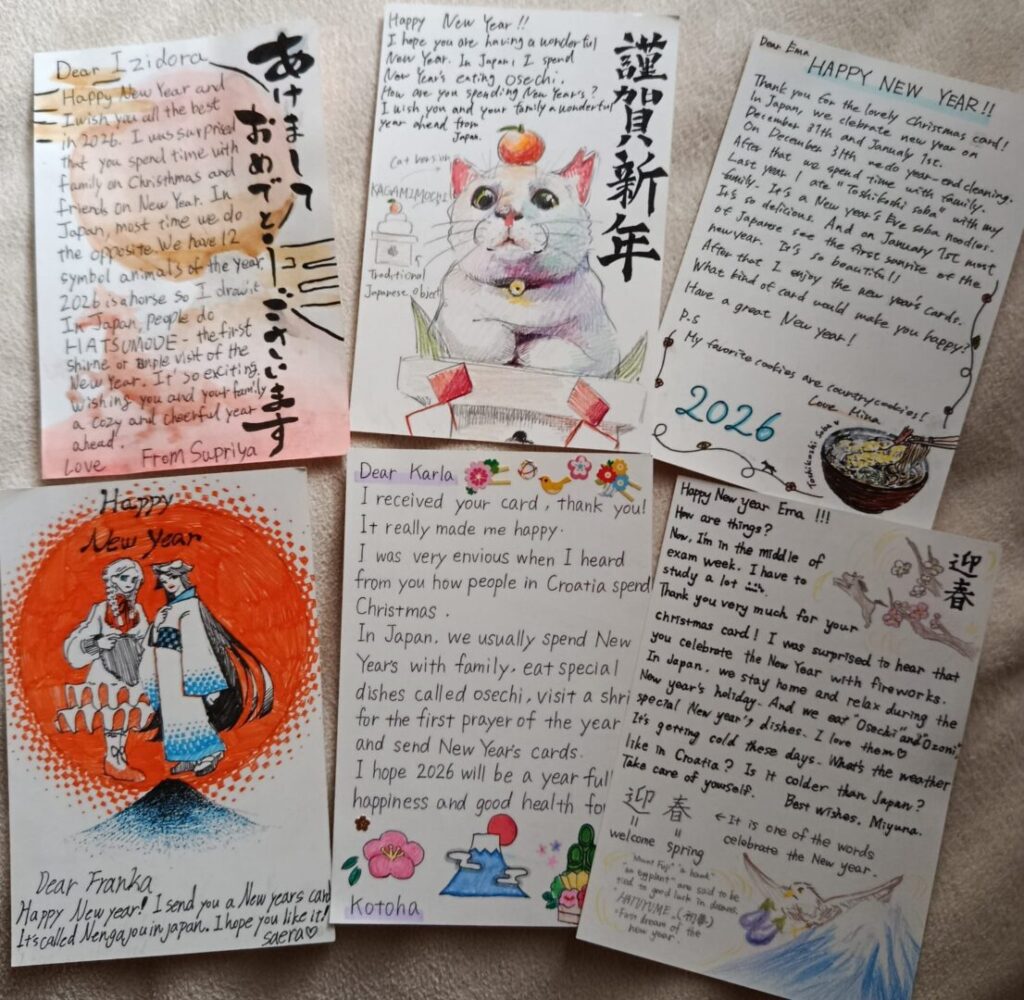 Dear Izidora
Happy New Year and
I wish you all the best
in 2026. I was surprised
that you spend time with
family on Christhmas and
friends on New Year. In
Japan, most time we do
the opposite. We have 12
symbol animals of the year.
2026 is a horse so I draw it
In Japan, people do
HATSUMODE - the first
shirne or temple visit of the
New Year. It's so exciting.
wishing you and your family
a cozy and cheerful year
ahead.
Love From Supriya
あけまして
おめでとうございます
Happy New Year!!
I hope you are having a wonderful
New Year. In Japan, I spend
New Year's eating Osechi.
How are you spending New Year's?
I wish you and your family a wonderful
year ahead from
Japan.
謹賀新年
Cat version
KAGAMIMOCHI
Traditional
Japanese object
Dear Ema
HAPPY NEW YEAR!!
Thank you for the lovely Christmas card!
In Japan, we celebrate new year on
December 31th and January 1st.
On December 31th we do year-end cleaning.
After that we spend time with family.
Last year I ate "Toshikoshi soba" with my
family. It's a New year's Eve soba noodles.
It's so delicious. And on January 1st most
of Japanese see the first sunrise of the
new year. It's so beautiful!
After that I enjoy the new year's cards.
What kind of card would make you happy?
Have a great New year!
P.S
My favorite cookies are country cookies!
Love Hina
2026
Toshikoshi Soba
Happy
New Year
Dear Franka
Happy New year! I send you a New years card
It's called Nengajou in japan. I hope you like it!
saera♡
Dear Karla
I received your card, thank you!
It really made me happy.
I was very envious when I heard
from you how people in Croatia spend
Christmas.
In Japan, we usually spend New
Years with family, eat special
dishes called osechi, visit a shri
for the first prayer of the year
and send New Year's cards.
I hope 2026 will be a year full
happiness and good health fo
Kotoha
Happy New year Ema !!!
How are things?
Now, I'm in the middle of
exam week. I have to
study a lot
Thank you very much for your
christmas card! I was surprised to hear that
you celebrate the New Year with fireworks.
In Japan, we stay home and relax during the
New year's holiday. And we eat "Osechi" and "Ozoni",
special New year's dishes. I love them♡
It's getting cold these days. What's the weather
like in Croatia? Is it colder than Japan?
Take care of yourself.
Best wishes. Miyuna.
迎春
迎 春
" "
welcome spring
← It is one of the words
celebrate the New year.
"Mount Fuji" "a hawk"
"an eggplant" are said to be
tied to good luck in dreams.
"HATUYUME" (初夢)
=First dream of the
new year.